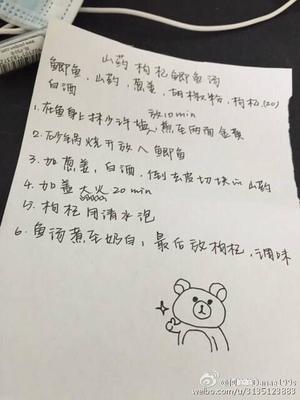 山药枸杞鲫鱼汤
鲫鱼，山药，葱姜，胡椒粉，枸杞(20)
白酒
放10min
1.在鱼身上抹少许盐，煎至两面金黄
2.砂锅烧开放入鲫鱼
3.加葱姜，白酒，倒去皮切块的山药
4.加盖大火20min
5.枸杞用清水泡
6.鱼汤煮至奶白，最后放枸杞，调味
weibo.com/u/3135123883